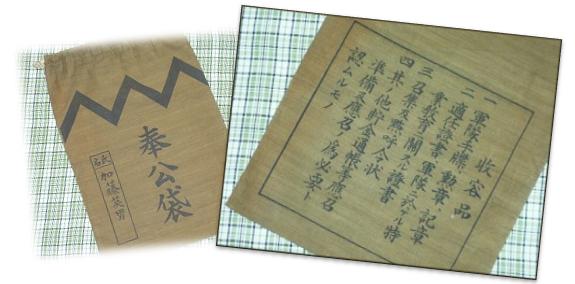 奉公袋
氏名
加藤英男
收容品
一 軍隊手牒、勲章、記章
二 適任證書、軍隊ニ於ケル特
業教育ニ關スル證書
三 召集及點呼ノ令狀
四 其ノ他貯金通帳等應召
準備及應召ノ爲必要ト
認ムルモノ